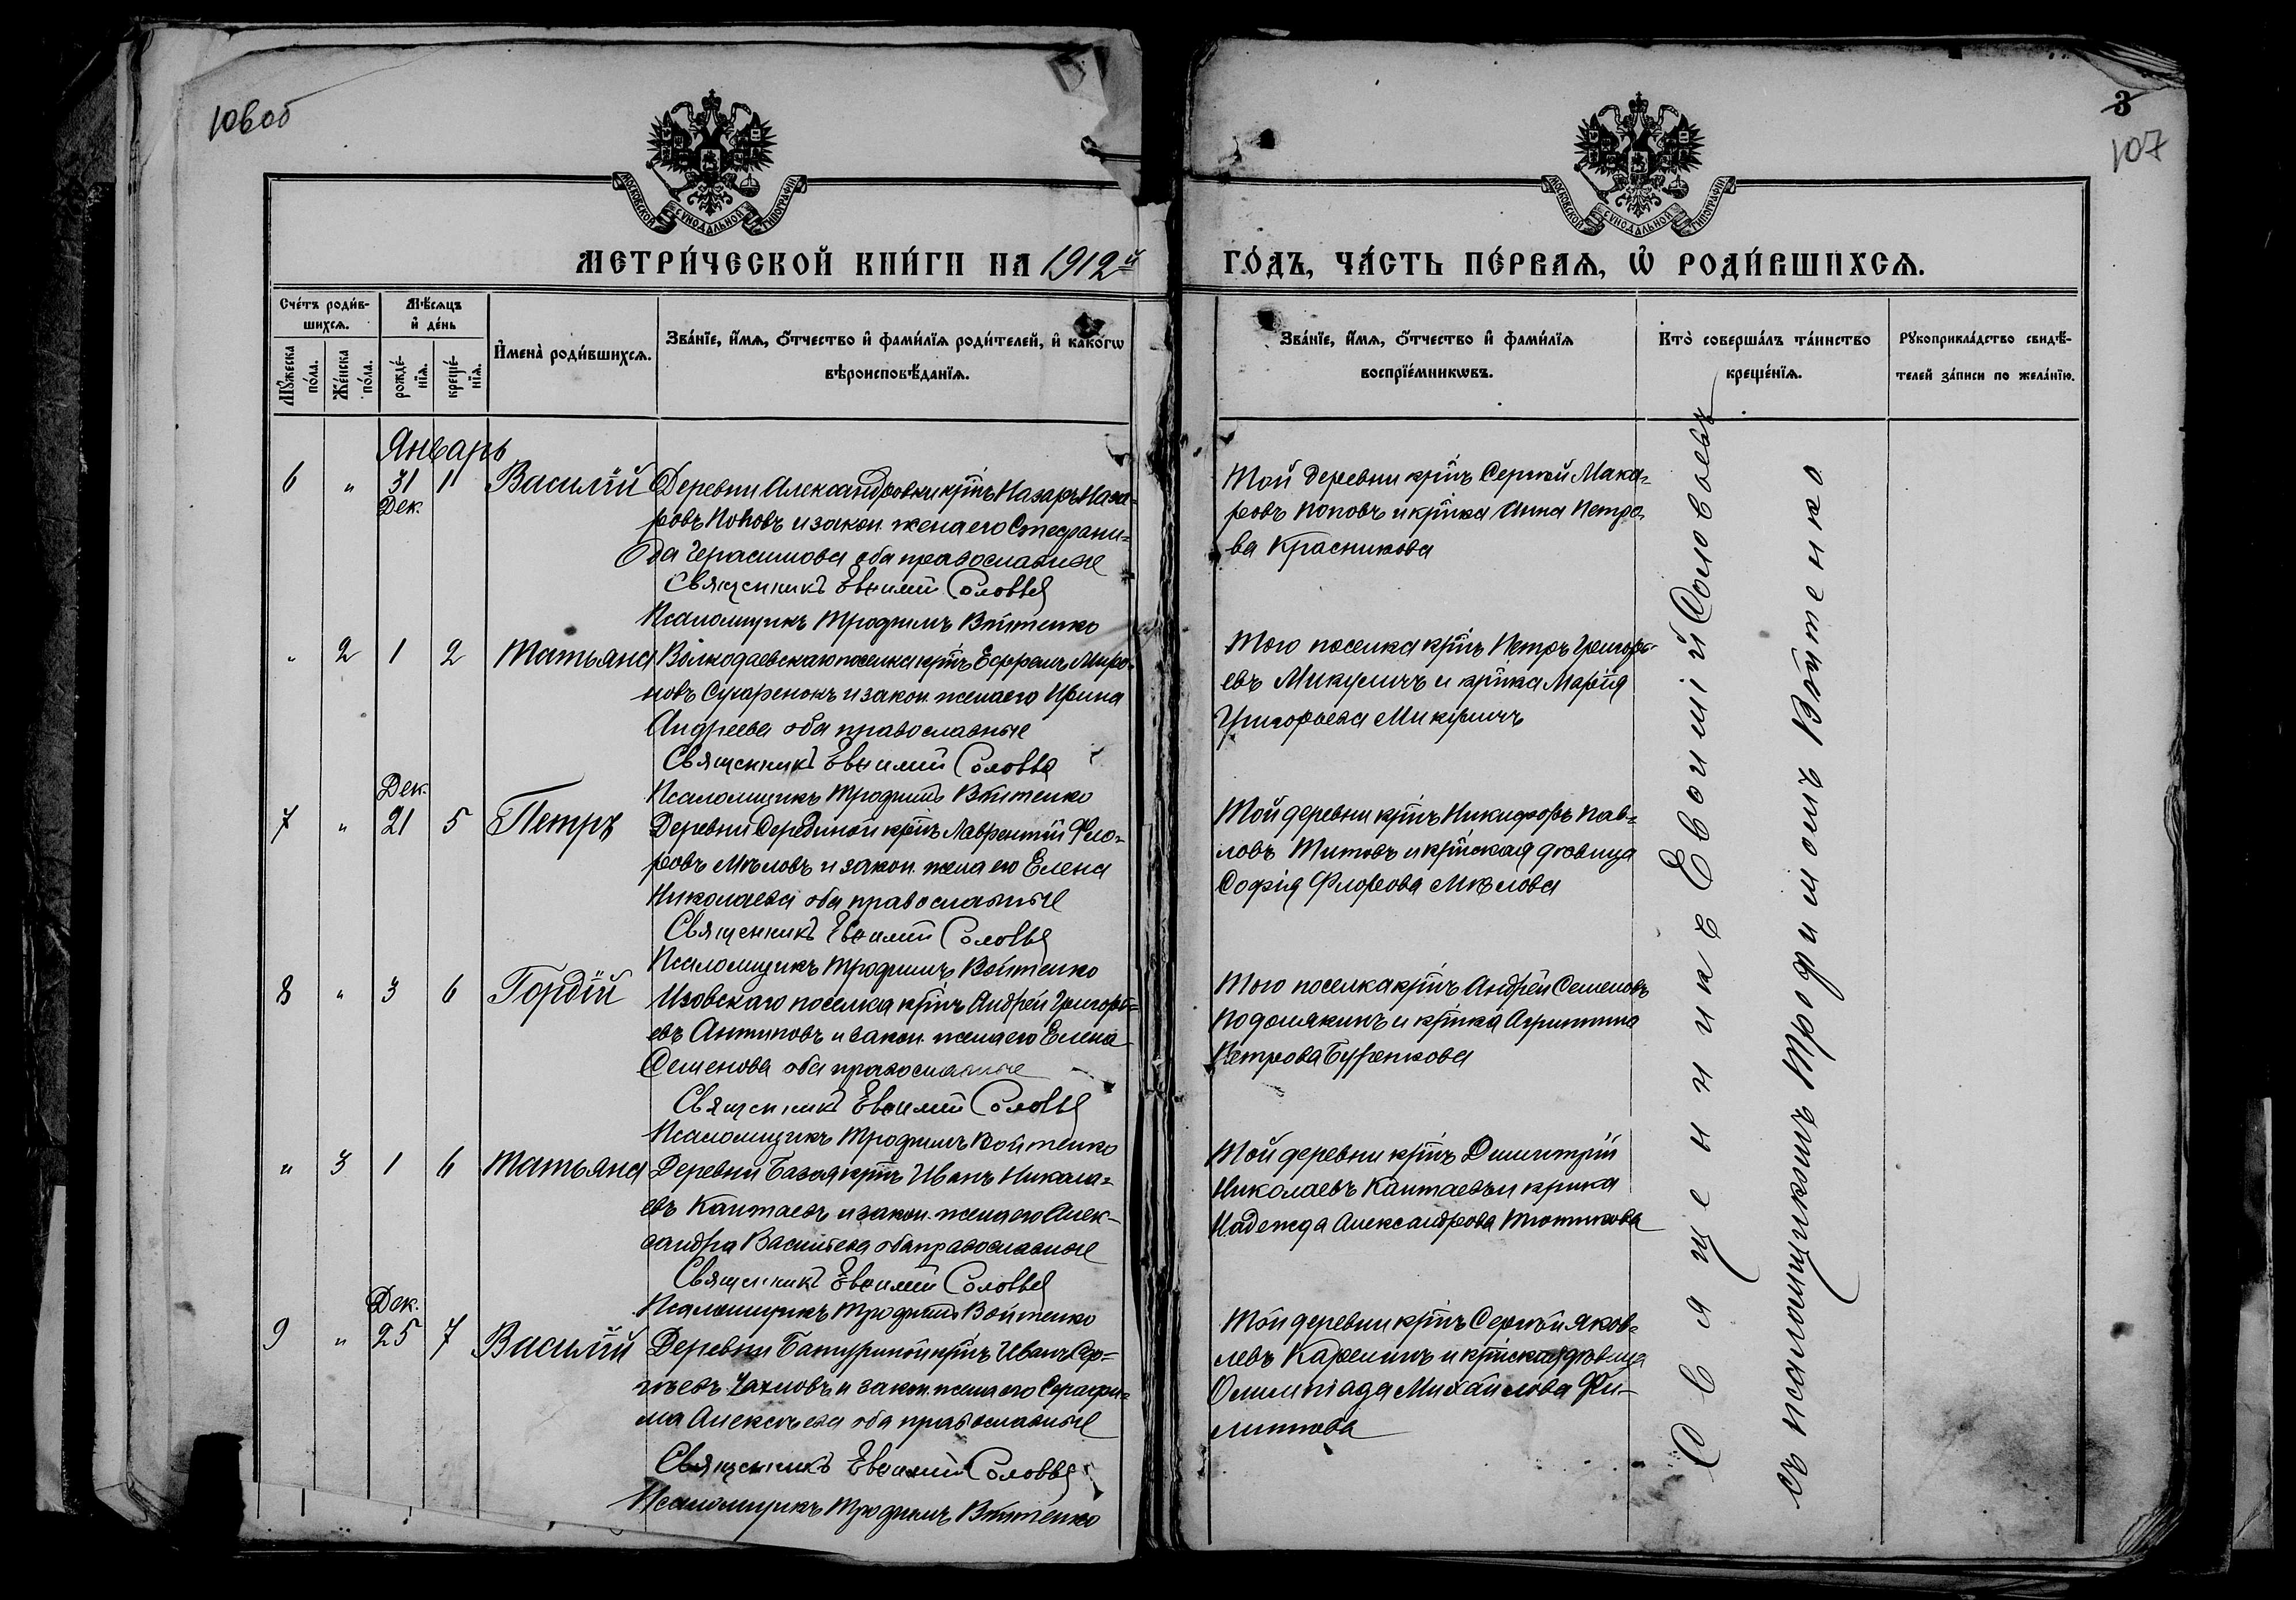 106об
3
107
МОСКОВСКОЙ СѴНОДАЛЬНОЙ ТИПОГРАФІИ
МОСКОВСКОЙ СѴНОДАЛЬНОЙ ТИПОГРАФІИ
МЕТРИ́ЧЕСКОЙ КНИ́ГИ НА 1912й
ГО́ДЪ, ЧА́СТЬ ПЕ́РВАЯ, Ѡ РОДИ́ВШИХСЯ.
Сче́тъ роди́в-
шихся.
Мѣ́сяцъ
и де́нь
Му́жеска
по́ла.
Же́нска
по́ла.
рожде́-
нія.
креще́-
нія.
И́мена̀ роди́вшихся.
Зва́нїе, и́мя, о́тчество и фами́лїя роди́телей, и како́гѡ
вѣроисповѣ́данїя.
Зва́нїе, и́мя, о́тчество и фами́лїя
воспрїе́мникѡвъ.
Кто̀ соверша́лъ та́инство
креще́нїя.
Рукоприкла́дство свидѣ́-
телей за́писи по жела́нїю.
Январь
6 „ 31 1 Василій Деревни Александровки кр̃нъ Назаръ Наза-
Дек.
ровъ Поповъ и закон. жена его Стефани-
да Герасимова оба православные
Священникъ Евѳимій Соловьев
Псаломщикъ Трофимъ Войтенко
Той деревни кр̃нъ Сергѣй Мака-
ровъ Поповъ и кр̃нка Анна Петро-
ва Красникова
„ 2 1 2 Татьяна Волкодаевскаго поселка кр̃нъ Ефремъ Миро-
новъ Сухаренокъ и закон. жена его Ирина
Андреева оба православные
Священникъ Евѳимій Соловьев
Псаломщикъ Трофимъ Войтенко
Того поселка кр̃нъ Петръ Григорь-
евъ Микуличъ и кр̃нка Марія
Григорьева Микуличъ
Дек.
7 „ 21 5 Петръ Деревни Серединой кр̃нъ Лаврентій Фло-
ровъ Мѣловъ и закон. жена его Елена
Николаева оба православные
Священникъ Евѳимій Соловьев
Псаломщикъ Трофимъ Войтенко
Той деревни кр̃нъ Никифоръ Пав-
ловъ Титовъ и кр̃нская дѣвица
Софія Флорова Мѣлова
8 „ 3 6 Гордій Изовскаго поселка кр̃нъ Андрей Григорь-
евъ Антиповъ и закон. жена его Елена
Семенова оба православные
Священникъ Евѳимій Соловьев
Псаломщикъ Трофимъ Войтенко
Того поселка кр̃нъ Андрей Семеновъ
Подолякинъ и кр̃нка Агриппина
Петрова Буренкова
„ 3 1 6 Татьяна Деревни Базоя кр̃нъ Иванъ Никола-
евъ Каитаевъ и закон. жена его Алек-
сандра Васильева оба православные
Священникъ Евѳимій Соловьев
Псаломщикъ Трофимъ Войтенко
Той деревни кр̃нъ Димитрій
Николаевъ Каитаевъ и кр̃нка
Надежда Александрова Тютикова
Дек.
9 „ 25 7 Василій Деревни Батуриной кр̃нъ Иванъ Сер-
гѣевъ Чахловъ и закон. жена его Серафи-
ма Алексѣева оба православные
Священникъ Евѳимій Соловьев
Псаломщикъ Трофимъ Войтенко
Той деревни кр̃нъ Сергѣй Яков-
левъ Карелинъ и кр̃нская дѣвица
Олимпіада Михайлова Фи-
липпова
Священникъ Евѳимій Соловьевъ
съ псаломщикомъ Трофимомъ Войтенко